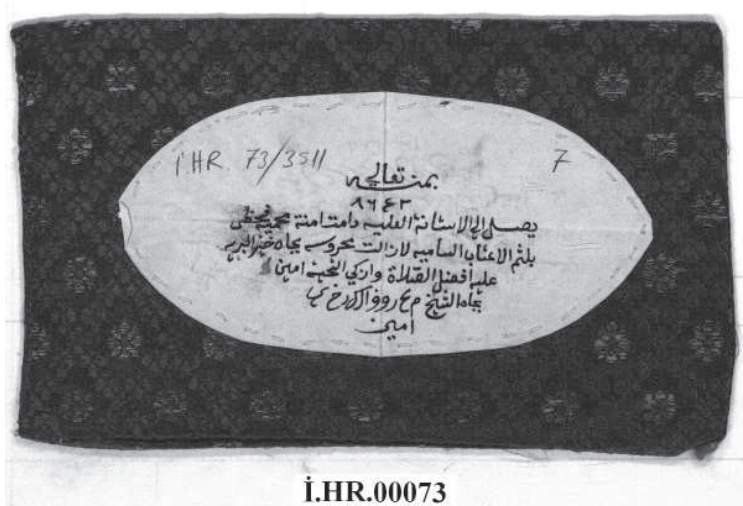 İ.HR. 73/3511
7
بمنه تعالى
٨٦٤٢
يصل إلى الاستانة العليه دامت امنة محمية فيحظى
بلثم الاعتاب الساميه لازالت محروسه بجاه خير البريه
عليه أفضل الصلاة وازكى التحية امين
بجاه الشيخ
امين
İ.HR.00073